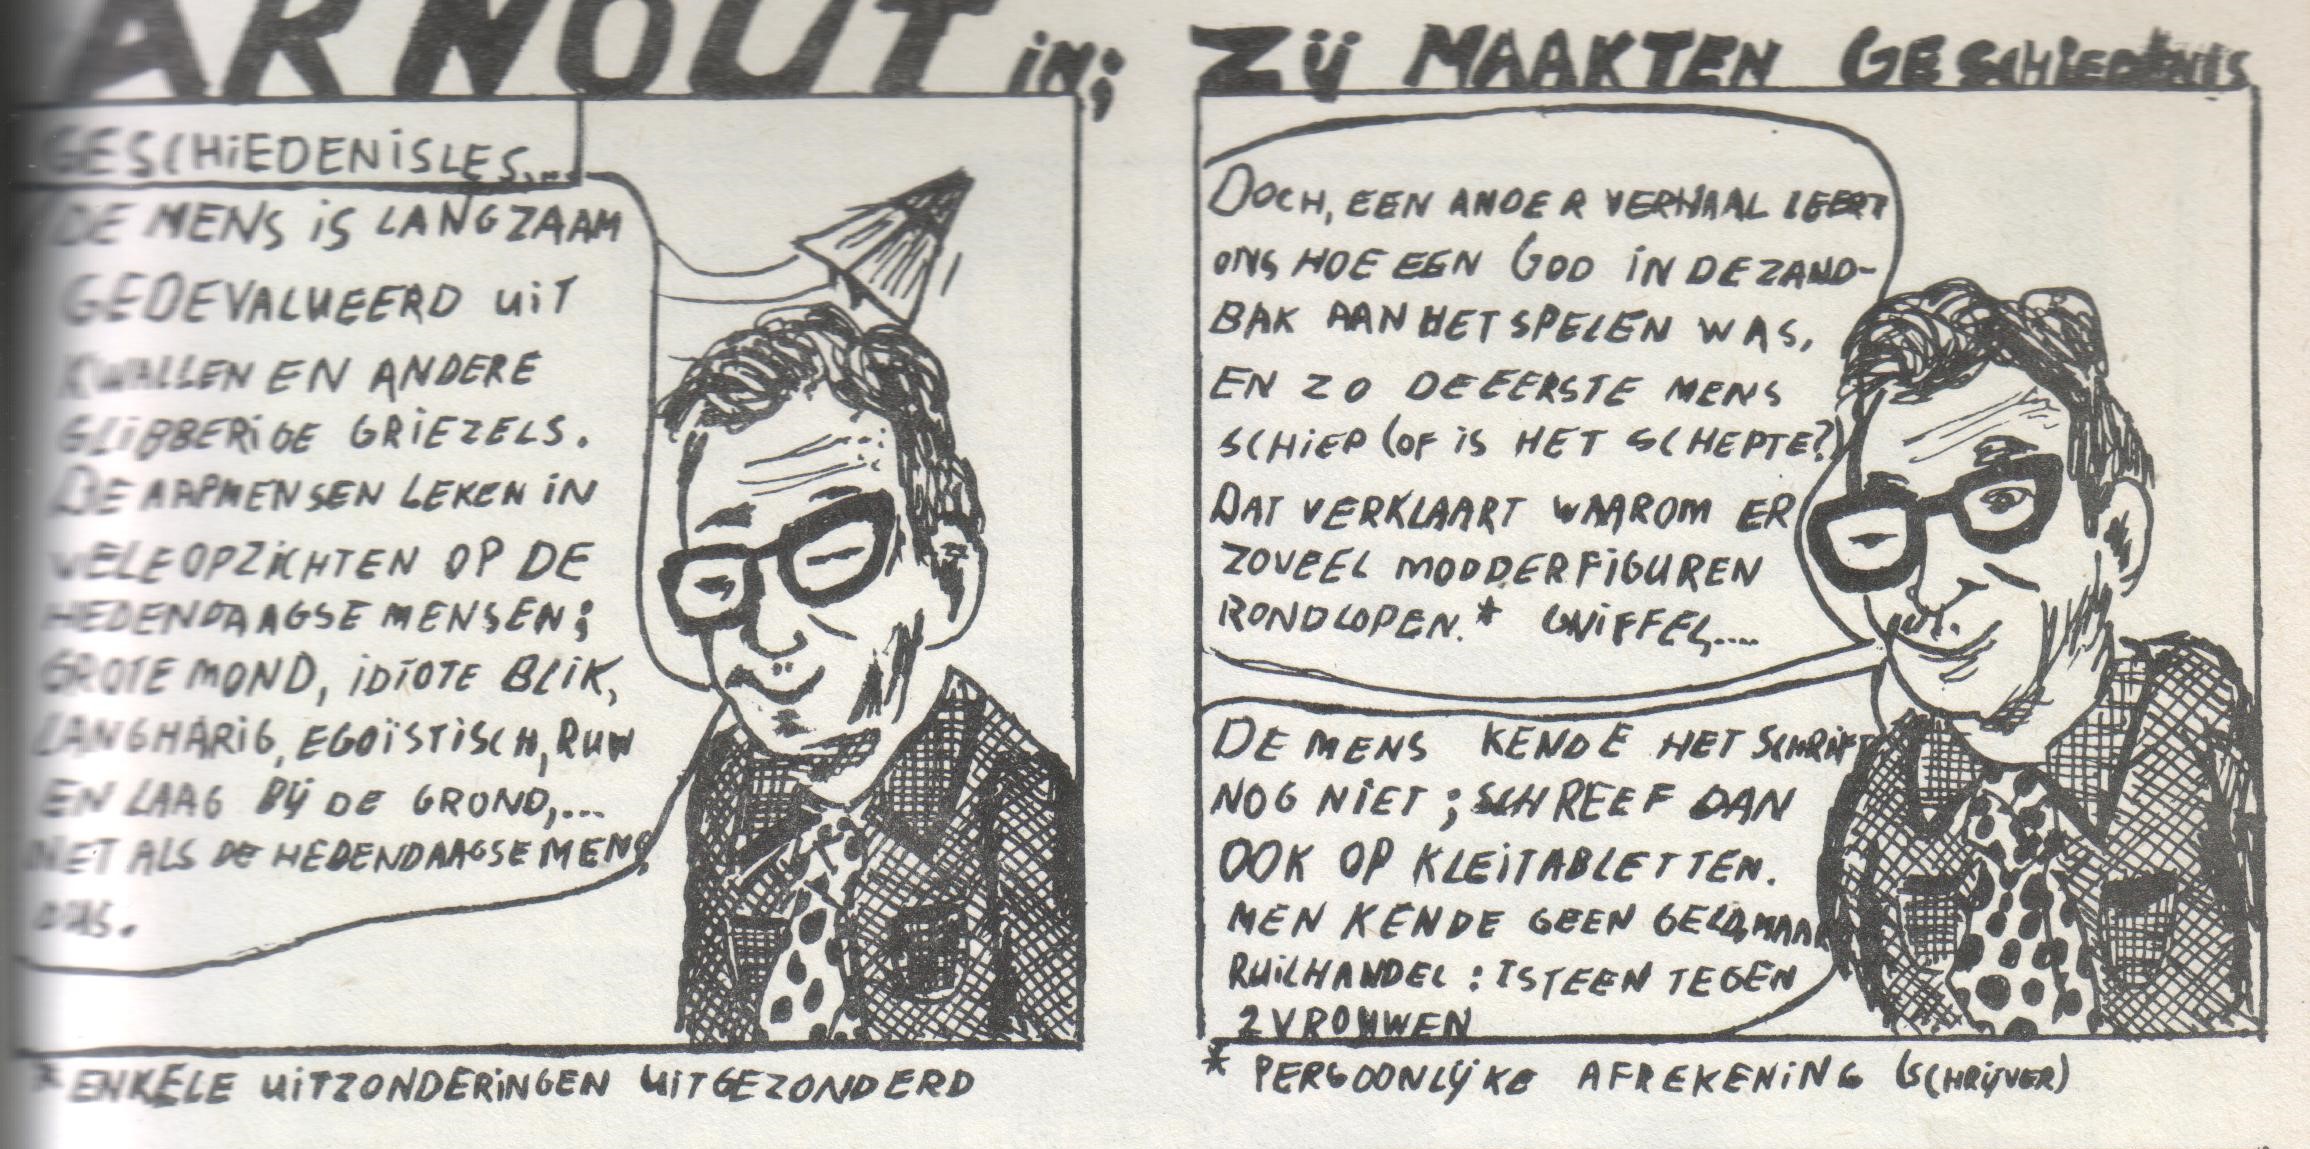 ARNOUT in; ZIJ MAAKTEN GESCHIEDENIS
GESCHIEDENISLES....
DE MENS IS LANGZAAM
GEDEVALUEERD UIT
KWALLEN EN ANDERE
GLIBBERIGE GRIEZELS.
DE AAPMENSEN LEKEN IN
VELE OPZICHTEN OP DE
HEDENDAAGSE MENSEN;
GROTE MOND, IDIOTE BLIK,
LANGHARIG, EGOÏSTISCH, RUW
EN LAAG BIJ DE GROND,...
NET ALS DE HEDENDAAGSE MENS
DUS.
* ENKELE UITZONDERINGEN UITGEZONDERD
DOCH, EEN ANDER VERHAAL LEERT
ONS HOE EEN GOD IN DE ZAND-
BAK AAN HET SPELEN WAS,
EN ZO DE EERSTE MENS
SCHIEP (OF IS HET SCHEPTE?)
DAT VERKLAART WAAROM ER
ZOVEEL MODDERFIGUREN
RONDLOPEN.* GNIFFEL....
DE MENS KENDE HET SCHRIFT
NOG NIET; SCHREEF DAN
OOK OP KLEITABLETTEN.
MEN KENDE GEEN GELD, MAAR
RUILHANDEL: 1 STEEN TEGEN
2 VROUWEN
* PERSOONLIJKE AFREKENING (SCHRIJVER)